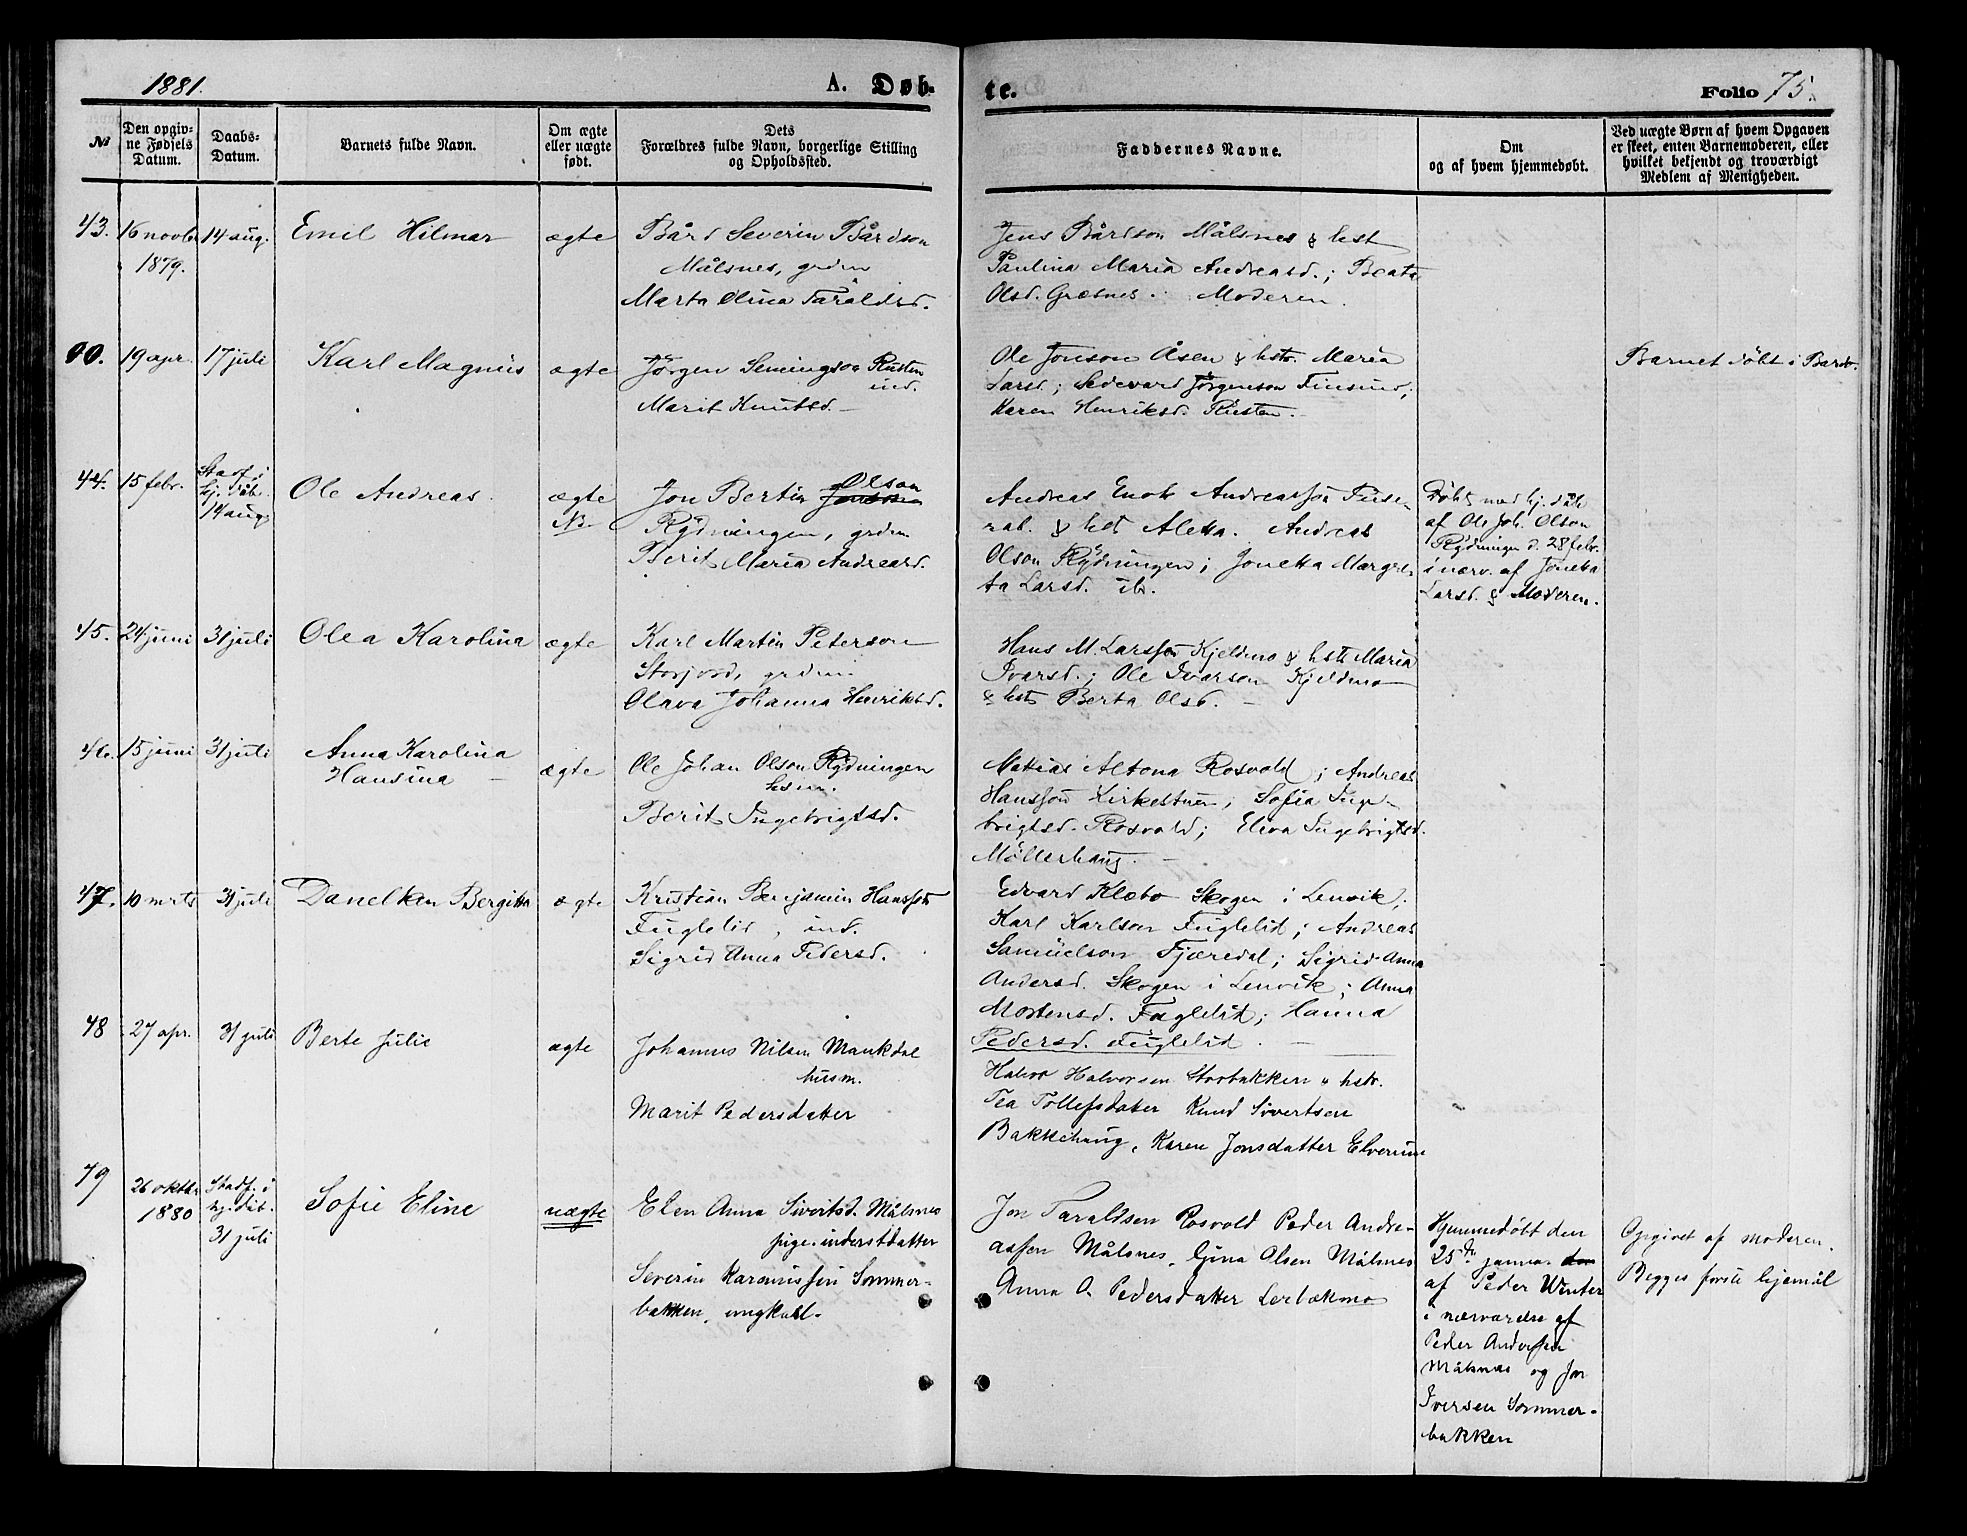 1881.
A. Døb-
te.
Folio 75.
№
Den opgiv-
ne Fødsels
Datum.
Daabs-
Datum.
Barnets fulde Navn.
Om ægte
eller uægte
født.
Dets
Forældres fulde Navn, borgerlige Stilling
og Opholdssted.
Faddernes Navne.
Om
og af hvem hjemmedøbt.
Ved uægte Børn af hvem Opgaven
er skeet, enten Barnemoderen, eller
hvilket bekjendt og troværdigt
Medlem af Menigheden.
43.
16 novbr
1879.
14 aug.
Emil Hilmar
ægte
Bård Severin Bårdson
Målsnes, grdm
Marta Olina Taraldsd.
Jens Bårdson Målsnes & hst
Paulina Maria Andreasd.; Beata
Olsd. Græsnes. Moderen.
00.
19 apr.
17 juli
Karl Magnus
ægte
Jørgen Semingson Rusten
ind.
Marit Knutsd.
Ole Jonson Åsen & hstr. Maria
Larsd; Sedevard Jørgenson Finsund;
Karen Henriksd. Rusten.
Barnet døbt i Bardo.
44.
15 febr.
Stadf. i
hj. dåb.
14 aug.
Ole Andreas.
ægte
Nb
Jon Bertin Jonson Olson
Rydningen, grdm.
Berit Maria Andreasd.
Andreas Enok Andreasson Fuse-
& hst Aletta. Andreas
Olson Rydningen; Jonetta Margre-
ta Larsd. ib.
Døbt med hj. dåb
af Ole Joh. Olson
Rydningen d. 28 febr.
i nærv. af Jonetta
Larsd. & Moderen.
45.
24 juni
31 juli
Olea Karolina
ægte
Karl Martin Peterson
Storjord, grdm.
Olava Johanna Henriksd.
Hans M. Larsson Kjeldmo & hst Maria
Ivarsd.; Ole Ivarson Kjeldmo
& hst Berta Olsd.
46.
15 juni
31 juli
Anna Karolina
Hansina
ægte
Ole Johan Olson Rydningen
husm.
Berit Ingebrigtsd.
Matias Altona Rosvold; Andreas
Hansson Kirkestuen; Sofia Inge-
brigtsd. Rosvold; Elen Ingebrigtsd.
Møllerhaug.
47.
10 mrts
31 juli
Danelken Bergitta
ægte
Kristian Benjamin Hansson
Fuglelid, ind.
Sigrid Anna Pedersd.
Edvard Klæbo Skogen i Lenvik;
Karl Karlson Fuglelid; Andreas
Samuelson Fjæredal; Sigrid Anna
Andersd. Skogen i Lenvik; Anna
Mortensd. Fuglelid; Hanna
Pedersd. Fuglelid.
48
27 apr.
31 juli
Berte Julie
ægte
Johannes Nilsen Maukdal
husm.
Marit Pedersdatter
Halvor Halvorsen Storbakken & hstr.
Tea Tollefsdatter Knud Sivertsen
Bakkehaug, Karen Jonsdatter Elverum
49
26 oktbr
1880
Stadf. i
hj. dåb.
31 juli
Sofie Eline
uægte
Elen Anna Sivertsd. Målsnes
pige. inderstdatter
Severin Karaniussen Sommer-
bakken, ungkarl.
Jon Taraldsen Rosvold Peder Andre-
assen Målsnes, Gjina Olsen Målsnes
Anna O. Pedersdatter Lerbækmo
Hjemmedøbt den
25de januar den
af Peder Winter
i nærværelse af
Peder Andersen
Målsnes og Jon
Iversen Sommer-
bakken
Opgivet af moderen.
Begges første lejemål